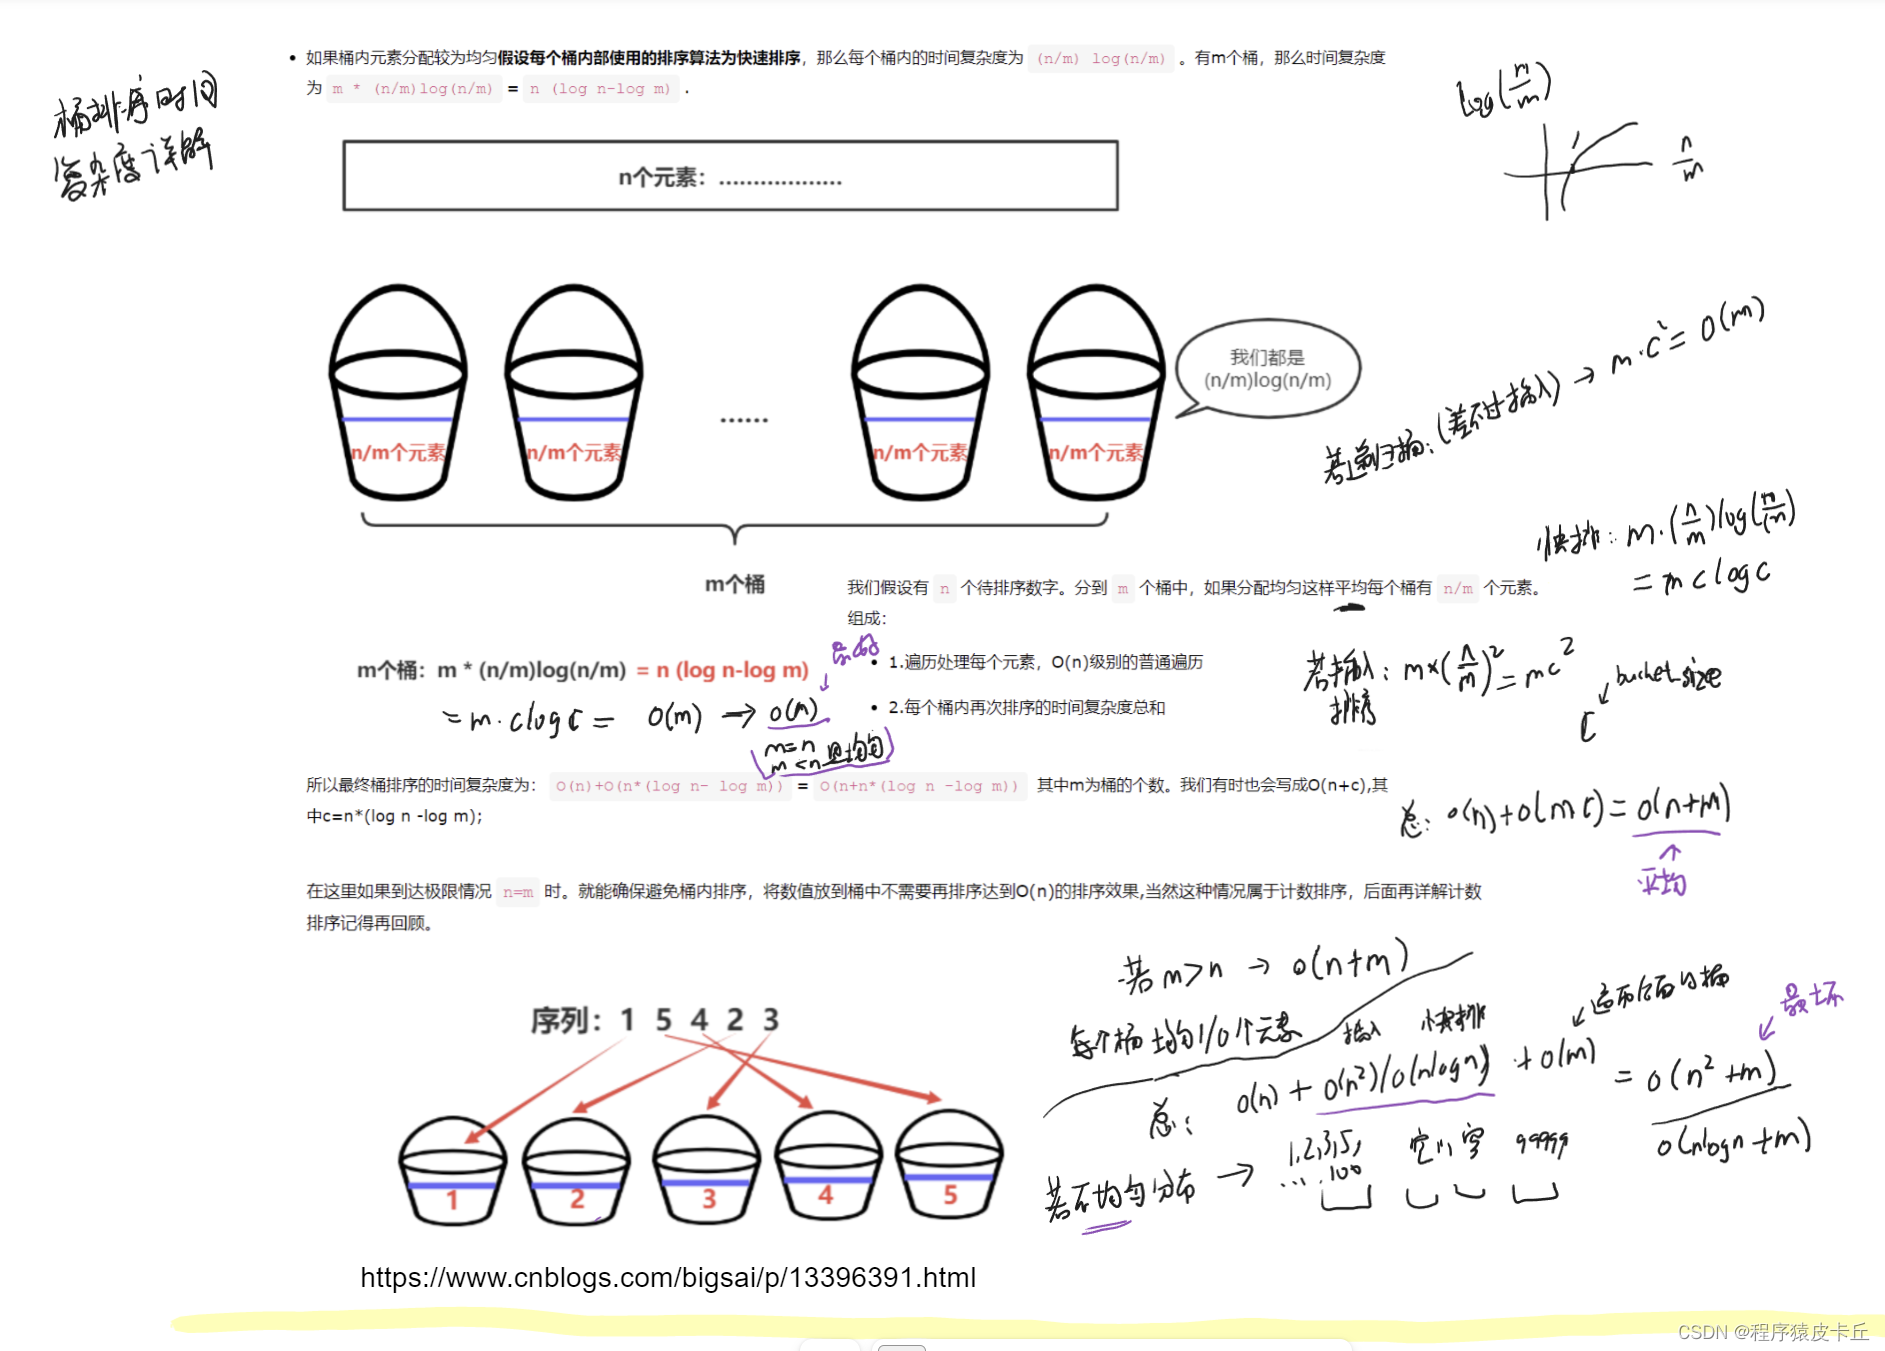 桶排序时间
复杂度详解
• 如果桶内元素分配较为均匀假设每个桶内部使用的排序算法为快速排序，那么每个桶内的时间复杂度为 (n/m) log(n/m) 。有m个桶，那么时间复杂度
为 m * (n/m)log(n/m) = n (log n-log m) .
log(n/m)
n/m
n个元素：..................
我们都是
(n/m)log(n/m)
n/m个元素
n/m个元素
......
n/m个元素
n/m个元素
若递归桶：(差不过插入) → m·c² = O(m)
m个桶
快排：m·(n/m)log(n/m)
= m c log c
我们假设有 n 个待排序数字。分到 m 个桶中，如果分配均匀这样平均每个桶有 n/m 个元素。
组成：
• 1.遍历处理每个元素，O(n)级别的普通遍历
• 2.每个桶内再次排序的时间复杂度总和
m个桶：m * (n/m)log(n/m) = n (log n-log m)
= m·clogc = O(m) → O(n)
m=n
m<n 且均匀
若插入排序：m×(n/m)² = mc²
bucket_size
c
所以最终桶排序的时间复杂度为： O(n)+O(n*(log n- log m)) = O(n+n*(log n -log m)) 其中m为桶的个数。我们有时也会写成O(n+c),其
中c=n*(log n -log m);
总：O(n)+O(mc) = O(n+m)
平均
在这里如果到达极限情况 n=m 时。就能确保避免桶内排序，将数值放到桶中不需要再排序达到O(n)的排序效果,当然这种情况属于计数排序，后面再详解计数
排序记得再回顾。
若 m>n → O(n+m)
每个桶均匀1/0个元素
序列：1 5 4 2 3
1
2
3
4
5
插入 快排
遍历后面的桶
最坏
总：O(n) + O(n²)/O(nlogn) + O(m) = O(n²+m)
O(nlogn+m)
若不均匀分布 → 1,2,3,5,
... .100
99999
https://www.cnblogs.com/bigsai/p/13396391.html
CSDN @程序猿皮卡丘